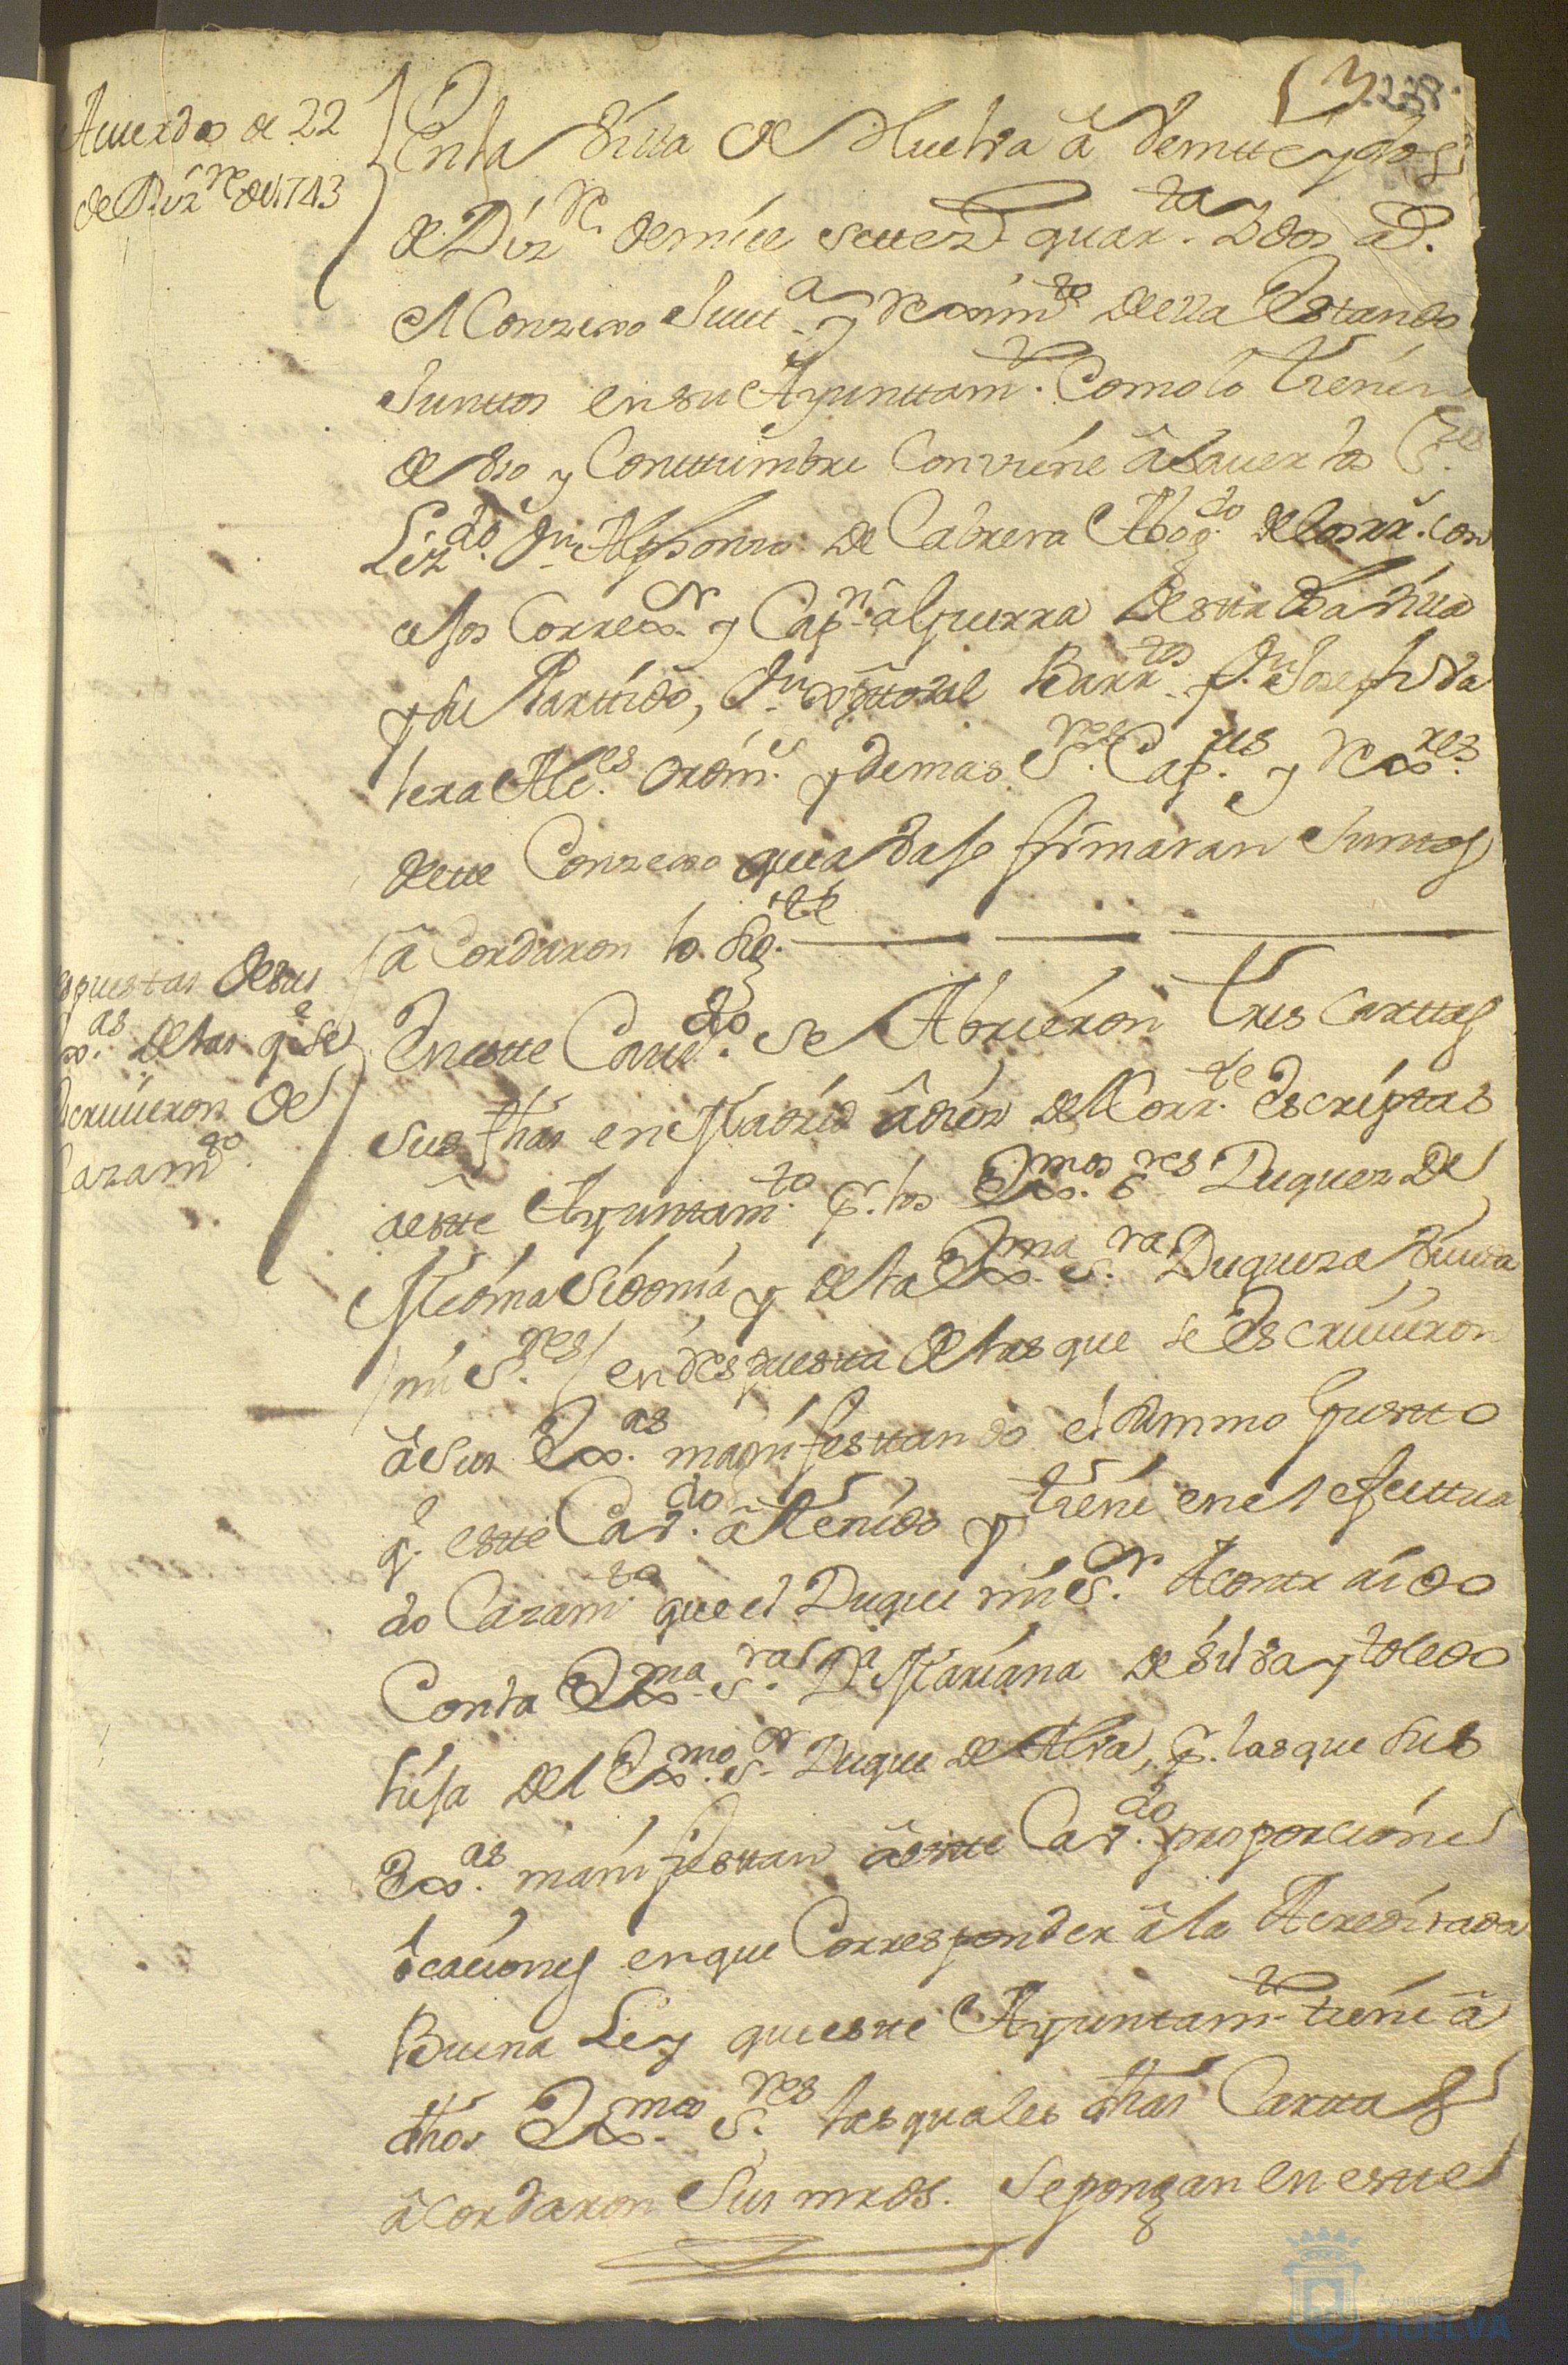 239
Acuerdos de 22
de Diz.re de 1743
En la Villa de Huelva â Veintte y dos
de Diz.re de mill settez.s quar.ta y dos a.s
el Conzexo Justt.a y Reximi.to de ella Estando
Junttos en su Ayunttam.to Como lo tienen
de uso y Costtumbre Conviene â saver los S.res
Liz.do D.n Alphonso de Cabrera Abog.do de los rr.s con
sejos Correx.or y Cap.n â Guerra de estta dha Villa
y su Parttido, D.n Xpttoval Barr.tos D.n Joseph da
lera Alc.es ordin.s y demas S.res Cap.res y Rex.res
de estte Conzexo que avajo firmaran Juntos
â Cordaron lo sig.te
spuestas de sus
ex.as de las q.e se
escrivieron de
Cazam.to
En estte Cavi.do se Abrieron tres Carttas
sus fhas en Madrid â diez del Corr.te Escriptas
a estte Ayuntam.to p.r los Ex.mos S.res Duquez de
Medina Sidonia, y de la Ex.ma S.ra Duqueza Viuda
/mi S.res/ en Respuesta de las que se Escrivieron
â Sus Ex.as manifesttando el summo Gustto
q.e estte Cav.do â tenido y tiene en el efecttua
do Cazam.to que el Duque mi S.or A contraido
Con la Ex.ma S.ra D.a Mariana de Silva y toledo
hija del Ex.mo S.or Duque de Alva, p.r las que sus
Ex.as manifesttan â estte Cav.do proporcione
ocaciones en que Corresponder â la Acreditada
Buena Ley que estte Ayuntam.to tiene â
dhos Ex.mos S.res las quales dhas Carttas
âcordaron Sus mrds. se pongan en estte
Ayuntamiento de
HUELVA